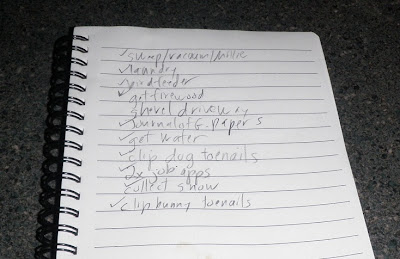 ✓ sweep/vacuum/
✓ laundry
✓ birdfeeder
✓ get firewood
shovel driveway
✓ Journal of G. papers
✓ get water
✓ clip dog toenails
✓ 2x job apps
✓ collect snow
✓ clip bunny toenails